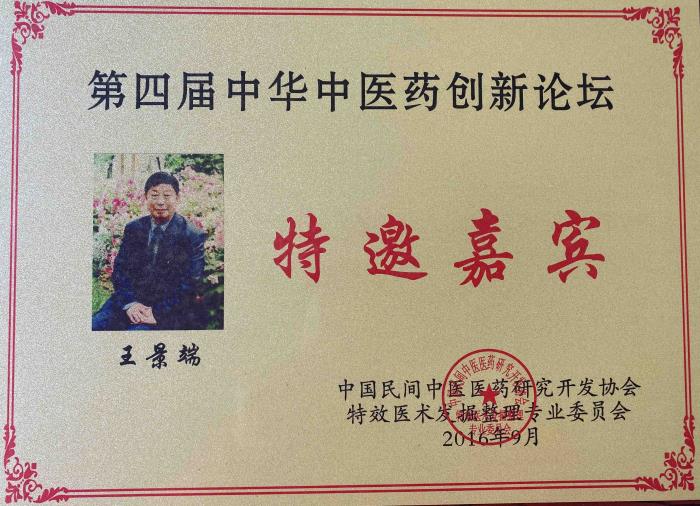 第四届中华中医药创新论坛
特邀嘉宾
王景端
中国民间中医医药研究开发协会
特效医术发掘整理专业委员会
2016年9月
专业委员会